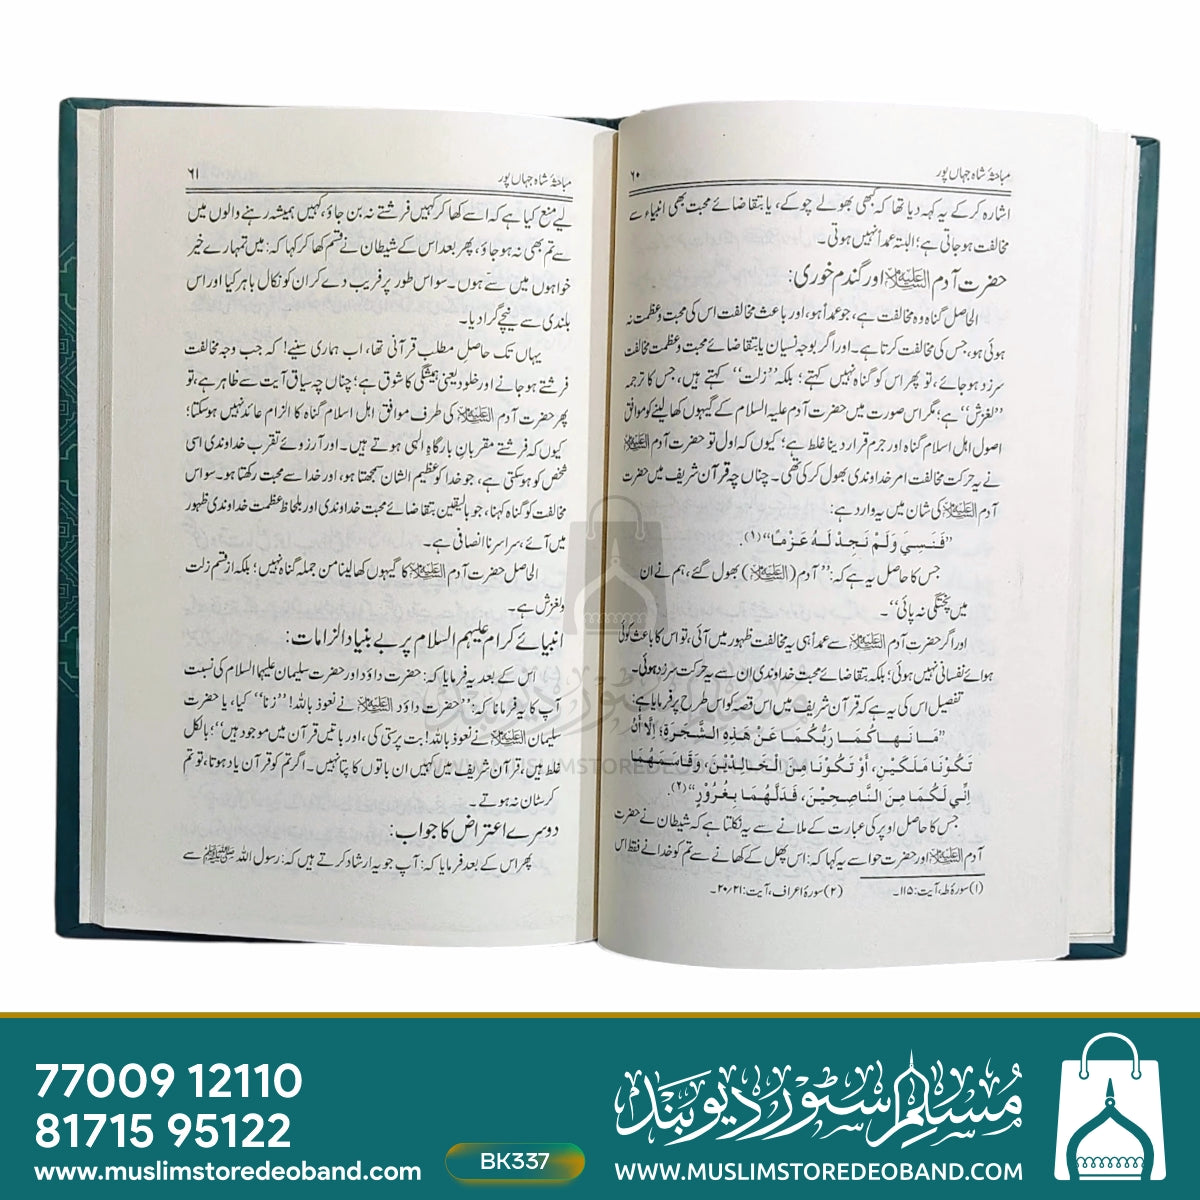 مباحثۂ شاہ جہاں پور
۶۰
اشارہ کرکے یہ کہہ دیا تھا کہ کبھی بھولے چوکے، یا بتقاضائے محبت بھی انبیاء سے
مخالفت ہوجاتی ہے؛ البتہ عمداً نہیں ہوتی۔
حضرت آدم علیہ السلام اور گندم خوری:
الحاصل گناہ وہ مخالفت ہے، جو عمداً ہو، اور باعث مخالفت اس کی محبت وعظمت نہ
ہوئی ہو، جس کی مخالفت کرتا ہے۔ اور اگر بوجہ نسیان یا بتقاضائے محبت وعظمت مخالفت
سرزد ہوجائے، تو پھر اس کو گناہ نہیں کہتے؛ بلکہ ”زلت“ کہتے ہیں، جس کا ترجمہ
”لغزش“ ہے؛ مگر اس صورت میں حضرت آدم علیہ السلام کے گیہوں کھا لینے کو موافق
اصول اہل اسلام گناہ اور جرم قرار دینا غلط ہے؛ کیوں کہ اول تو حضرت آدم علیہ السلام
نے یہ حرکت مخالفت امر خداوندی بھول کر کی تھی۔ چناں چہ قرآن شریف میں حضرت
آدم علیہ السلام کی شان میں یہ وارد ہے:
”فَنَسِيَ وَلَمْ نَجِدْ لَهُ عَزْمًا“ (۱)۔
جس کا حاصل یہ ہے کہ: ”آدم (علیہ السلام) بھول گئے، ہم نے ان
میں پختگی نہ پائی“۔
اور اگر حضرت آدم علیہ السلام سے عمداً ہی یہ مخالفت ظہور میں آئی، تو اس کا باعث کوئی
ہوائے نفسانی نہیں ہوئی؛ بلکہ بتقاضائے محبت خداوندی ان سے یہ حرکت سرزد ہوئی۔
تفصیل اس کی یہ ہے کہ قرآن شریف میں اس قصہ کو اس طرح پر فرمایا ہے:
”مَا نَهَاكُمَا رَبُّكُمَا عَنْ هَذِهِ الشَّجَرَةِ؛ إِلَّا أَنْ
تَكُوْنَا مَلَكَيْنِ، أَوْ تَكُوْنَا مِنَ الْخَالِدِيْنَ، وَقَاسَمَهُمَا
إِنِّي لَكُمَا مِنَ النَّاصِحِيْنَ، فَدَلَّهُمَا بِغُرُوْرٍ“ (۲)۔
جس کا حاصل اوپر کی عبارت کے ملانے سے یہ نکلتا ہے کہ شیطان نے حضرت
آدم علیہ السلام اور حضرت حوا سے یہ کہا کہ: اس پھل کے کھانے سے تم کو خدا نے فقط اس
(۱) سورۂ طٰہ، آیت: ۱۱۵۔ (۲) سورۂ اعراف، آیت: ۲۰/۲۱۔
مباحثۂ شاہ جہاں پور
۶۱
لیے منع کیا ہے کہ اسے کھا کر کہیں فرشتے نہ بن جاؤ، کہیں ہمیشہ رہنے والوں میں
سے تم بھی نہ ہوجاؤ، پھر بعد اس کے شیطان نے قسم کھا کر کہا کہ: میں تمہارے خیر
خواہوں میں سے ہوں۔ سو اس طور پر فریب دے کر ان کو نکال باہر کیا اور اس
بلندی سے نیچے گرا دیا۔
یہاں تک حاصل مطلب قرآنی تھا، اب ہماری سنیے! کہ جب وجہ مخالفت
فرشتے ہوجانے اور خلود یعنی ہمیشگی کا شوق ہے؛ چناں چہ سیاق آیت سے ظاہر ہے، تو
پھر حضرت آدم علیہ السلام کی طرف موافق اہل اسلام گناہ کا الزام عائد نہیں ہوسکتا؛
کیوں کہ فرشتے مقربان بارگاہ الٰہی ہوتے ہیں۔ اور آرزوئے تقرب خداوندی اسی
شخص کو ہوسکتی ہے، جو خدا کو عظیم الشان سمجھتا ہو، اور خدا سے محبت رکھتا ہو۔ سو اس
مخالفت کو گناہ کہنا، جو بالیقین بتقاضائے محبت خداوندی اور بلحاظ عظمت خداوندی ظہور
میں آئے، سراسر نا انصافی ہے۔
الحاصل حضرت آدم علیہ السلام کا گیہوں کھالینا من جملہ گناہ نہیں؛ بلکہ از قسم زلت
ولغزش ہے۔
انبیائے کرام علیہم السلام پر بے بنیاد الزامات:
اس کے بعد یہ فرمایا کہ: حضرت داؤد اور حضرت سلیمان علیہما السلام کی نسبت
آپ کا یہ فرمانا کہ: ”حضرت داؤد علیہ السلام نے نعوذ باللہ! ”زنا“ کیا، یا حضرت
سلیمان علیہ السلام نے نعوذ باللہ! بت پرستی کی، اور یا باتیں قرآن میں موجود ہیں“؛ بالکل
غلط ہیں، قرآن شریف میں کہیں ان باتوں کا پتا نہیں۔ اگر تم کو قرآن یاد ہوتا، تو تم
کرسٹان نہ ہوتے۔
دوسرے اعتراض کا جواب:
پھر اس کے بعد فرمایا کہ: آپ جو یہ ارشاد کرتے ہیں کہ: رسول اللہ ﷺ سے
مسلم سٹور دیوبند
WWW.MUSLIMSTOREDEOBAND.COM
77009 12110
81715 95122
www.muslimstoredeoband.com
BK337
مسلم سٹور دیوبند
WWW.MUSLIMSTOREDEOBAND.COM